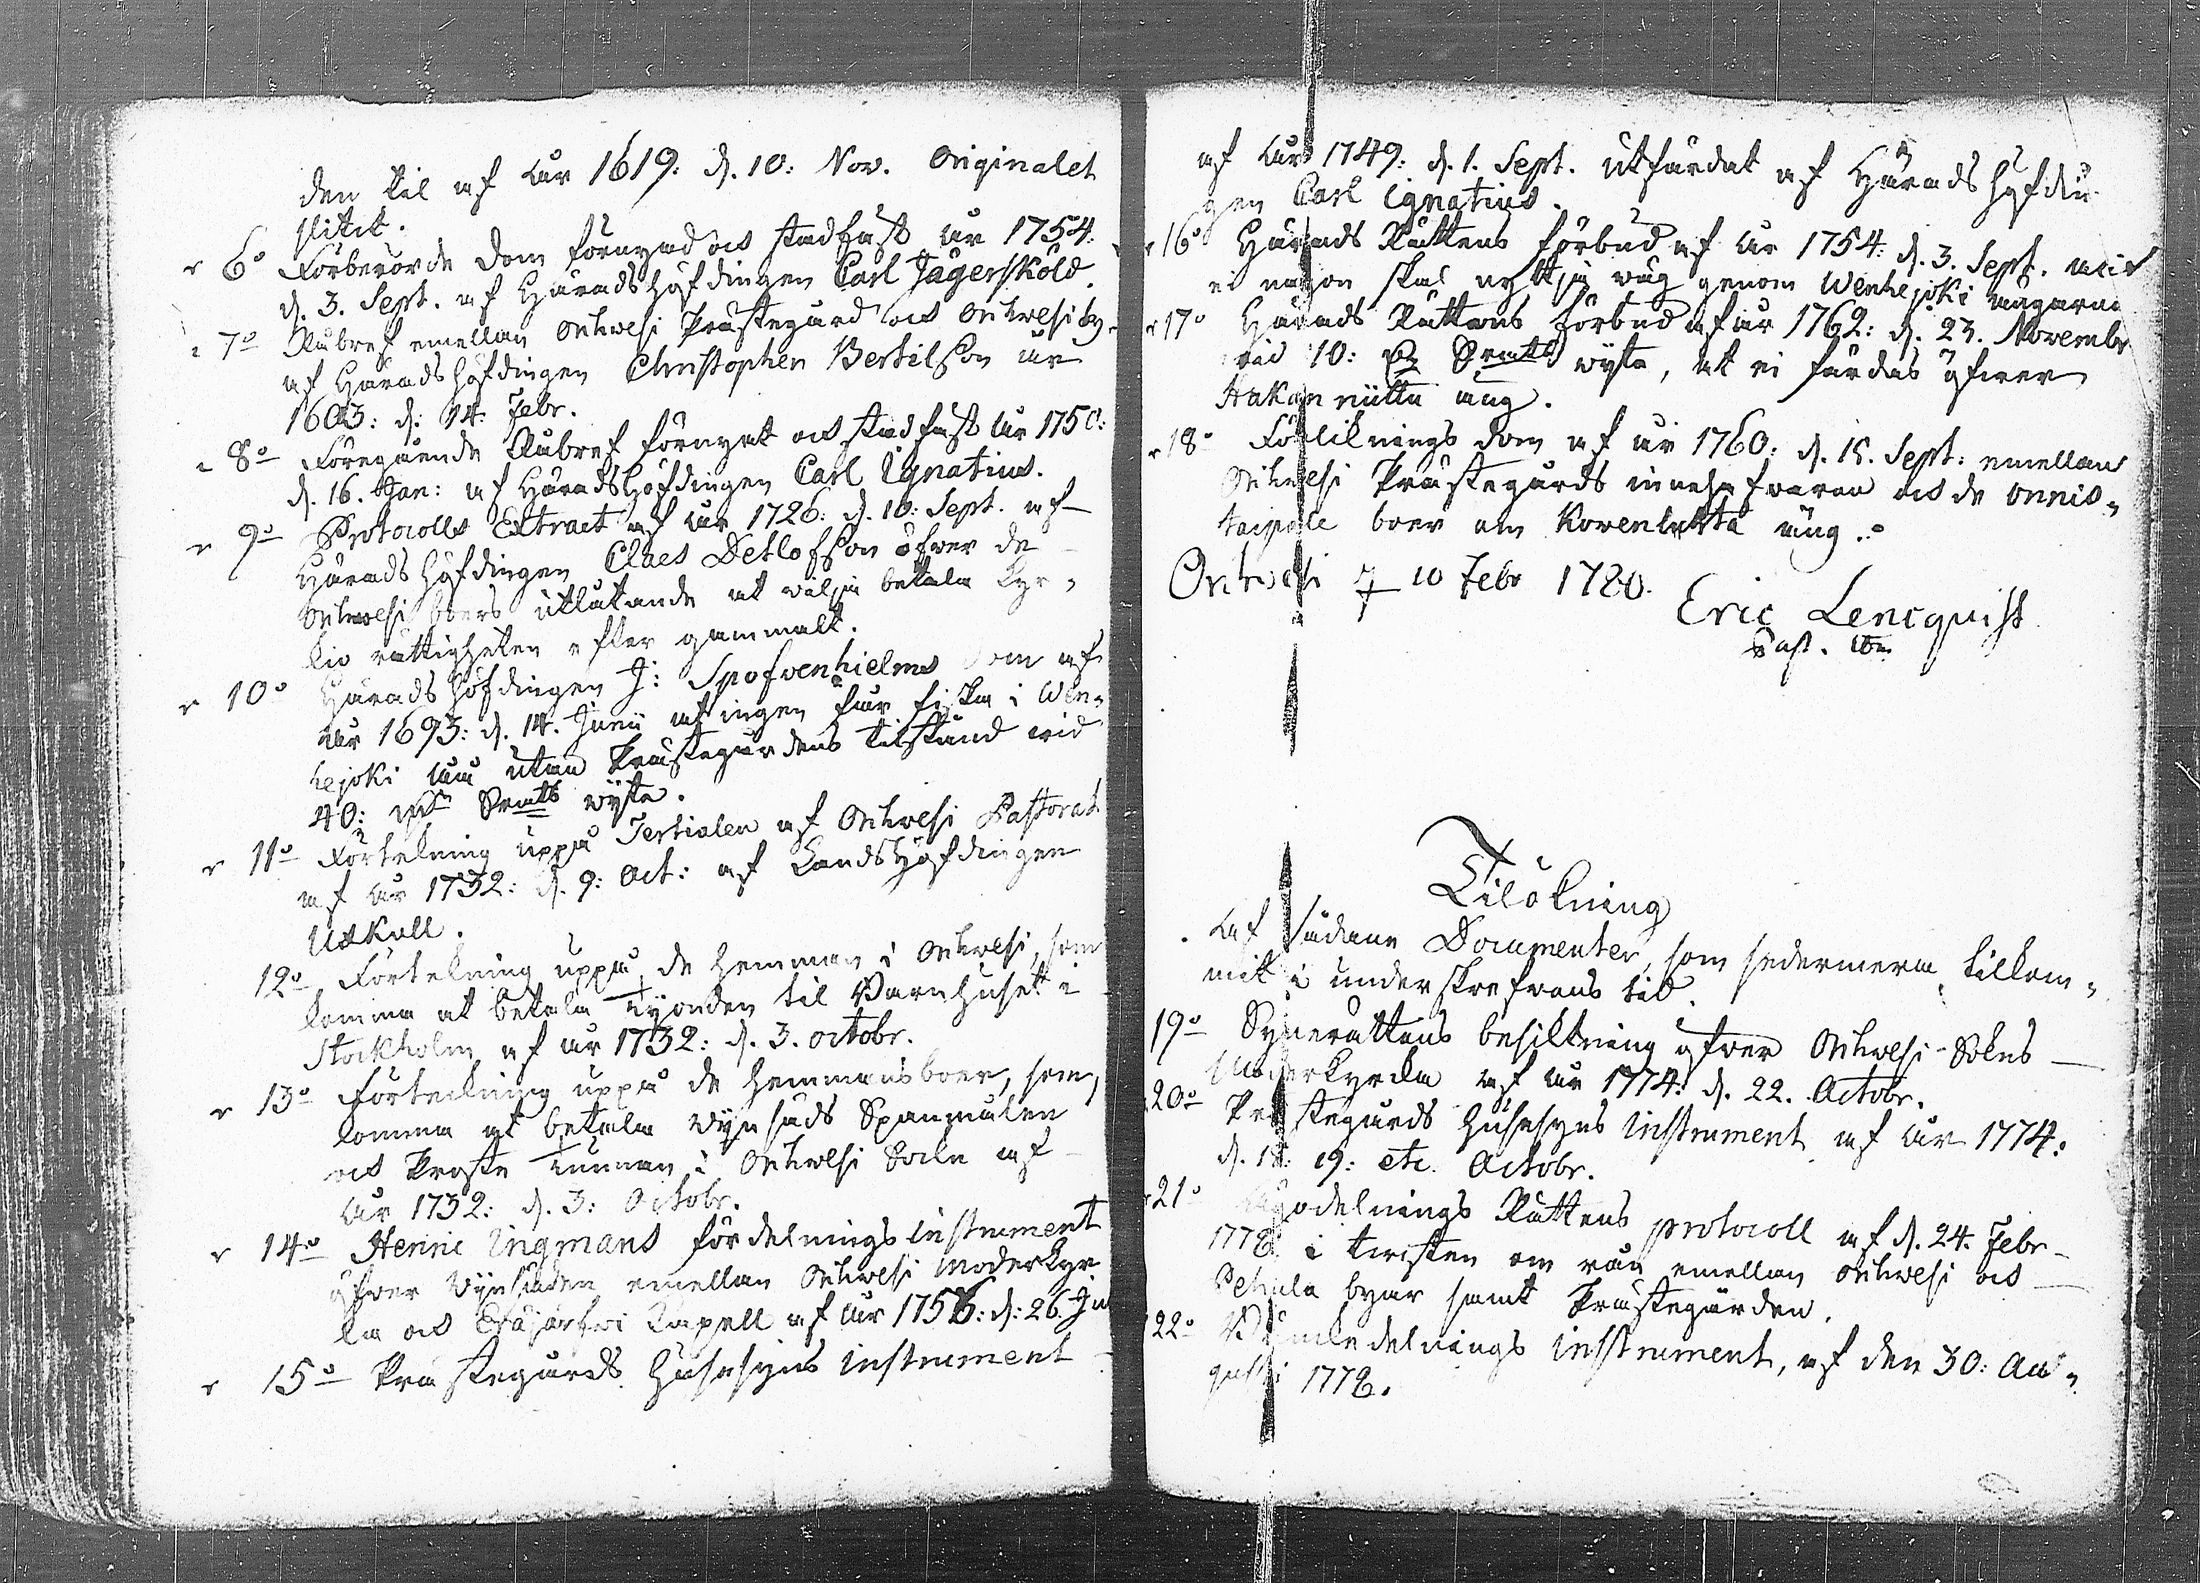 den til af år 1619: d. 10: Nov. Originalet
slitit.
6o Förberörde dom förnyad och stadfäst år 1754.
d. 3. Sept. af Häradshöfdingen Carl Jägerskôld.
7o Råbref emellan Orihwesi Prästegård och Orihwesi by
af Häradshöfdingen Christopher Bertilsson år
1603: d: 14: Febr.
8o Föregående Råbref förnyat och stadfäst år 1750:
d. 16. Jan: af Häradshöfdingen Carl Ignatius.
9o Protocolls Extract af år 1726: d. 10: Sept. af
Häradshöfdingen Claes Detlofsson öfwer de
Orihwesi boers utlåtande at wälja betala Kyr=
kio rättigheten efter gammalt.
10o Häradshöfdingen J: Spofvenhielms dom af
år 1693: d. 14. Junii at ingen får fiska i Wen=
hejoki å utan Prästegårdens tilstånd wid
40: Smts wyte.
11o Förtekning uppå Tertialen af Orihwesi Pastorat
af år 1732: d. 9: Oct: af Landshöfdingen
Udkull.
12o Förtekning uppå de hemman i Orihwesi, som
komma at betala Tyonden til Barnhuset i
Stockholm af år 1732: d. 3. octobr.
13o Förteckning uppå de hemmansboer, som,
komma at betala Wynsäds Spanmålen
och Proste Tunnan i Orihwesi Sockn af
år 1732: d. 3: Octobr.
14o Henric Ingmans fördelnings instrument
öfwer Wynsäden emellan Orihwesi Moderkyr
ka och Eräjärfwi Kapell af år 1756: d: 26. Ju
15o Prästegårds Husesyns instrument
af år 1749: d. 1. Sept. utfärdat af Häradshöfdin
gen Carl Ignatius.
16o Härads Rättens förbud af år 1754: d. 3. Sept. att
ei någon skal nyttja wäg genom Wenhejoki ängarne
17o Härads Rättens förbud af år 1762: d. 23. Novembr
wid 10: Smts wyte, at ei färdas öfwer
Hakanniittu äng.
18o Förliknings dom af år 1760: d. 18. Sept: emellan
Orihwesi Prästegårds innehafwaren och de Onnis=
taipale boer om Kovenlahta äng.
Orihwesi d 10 Febr 1780.
Eric Lencquist
Past. ibm
Tilökning
Af sådane Documenter, som sedermera tilkom=
mit i underskrefwens tid.
19o Synerättens besiktning öfwer Orihwesi Sokns
Moderkyrka af år 1774: d. 22. Octobr.
20o Prästegårds Husesyns instrument af år 1774:
d. 18: 19: etc. Octobr.
21o Ägodelnings Rättens protocoll af d. 24. Febr
1778 i twisten om rån emellan Orihwesi och
Pehula byar samt Prästegården.
22o delnings instrument, af den 30: Au=
gusti 1778.